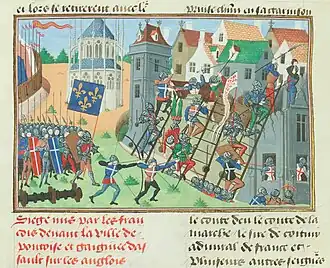 et loꝛs se retirerent auecle
puis ẽ bien en sa garnison
Siege mis par les fran
cois deuant la ville de
pontoise et gaignee das
sault sur les anglois
le conte deu le conte de la
marche le sire de coitiuy
admiral de france et
plusieurs autres seigns